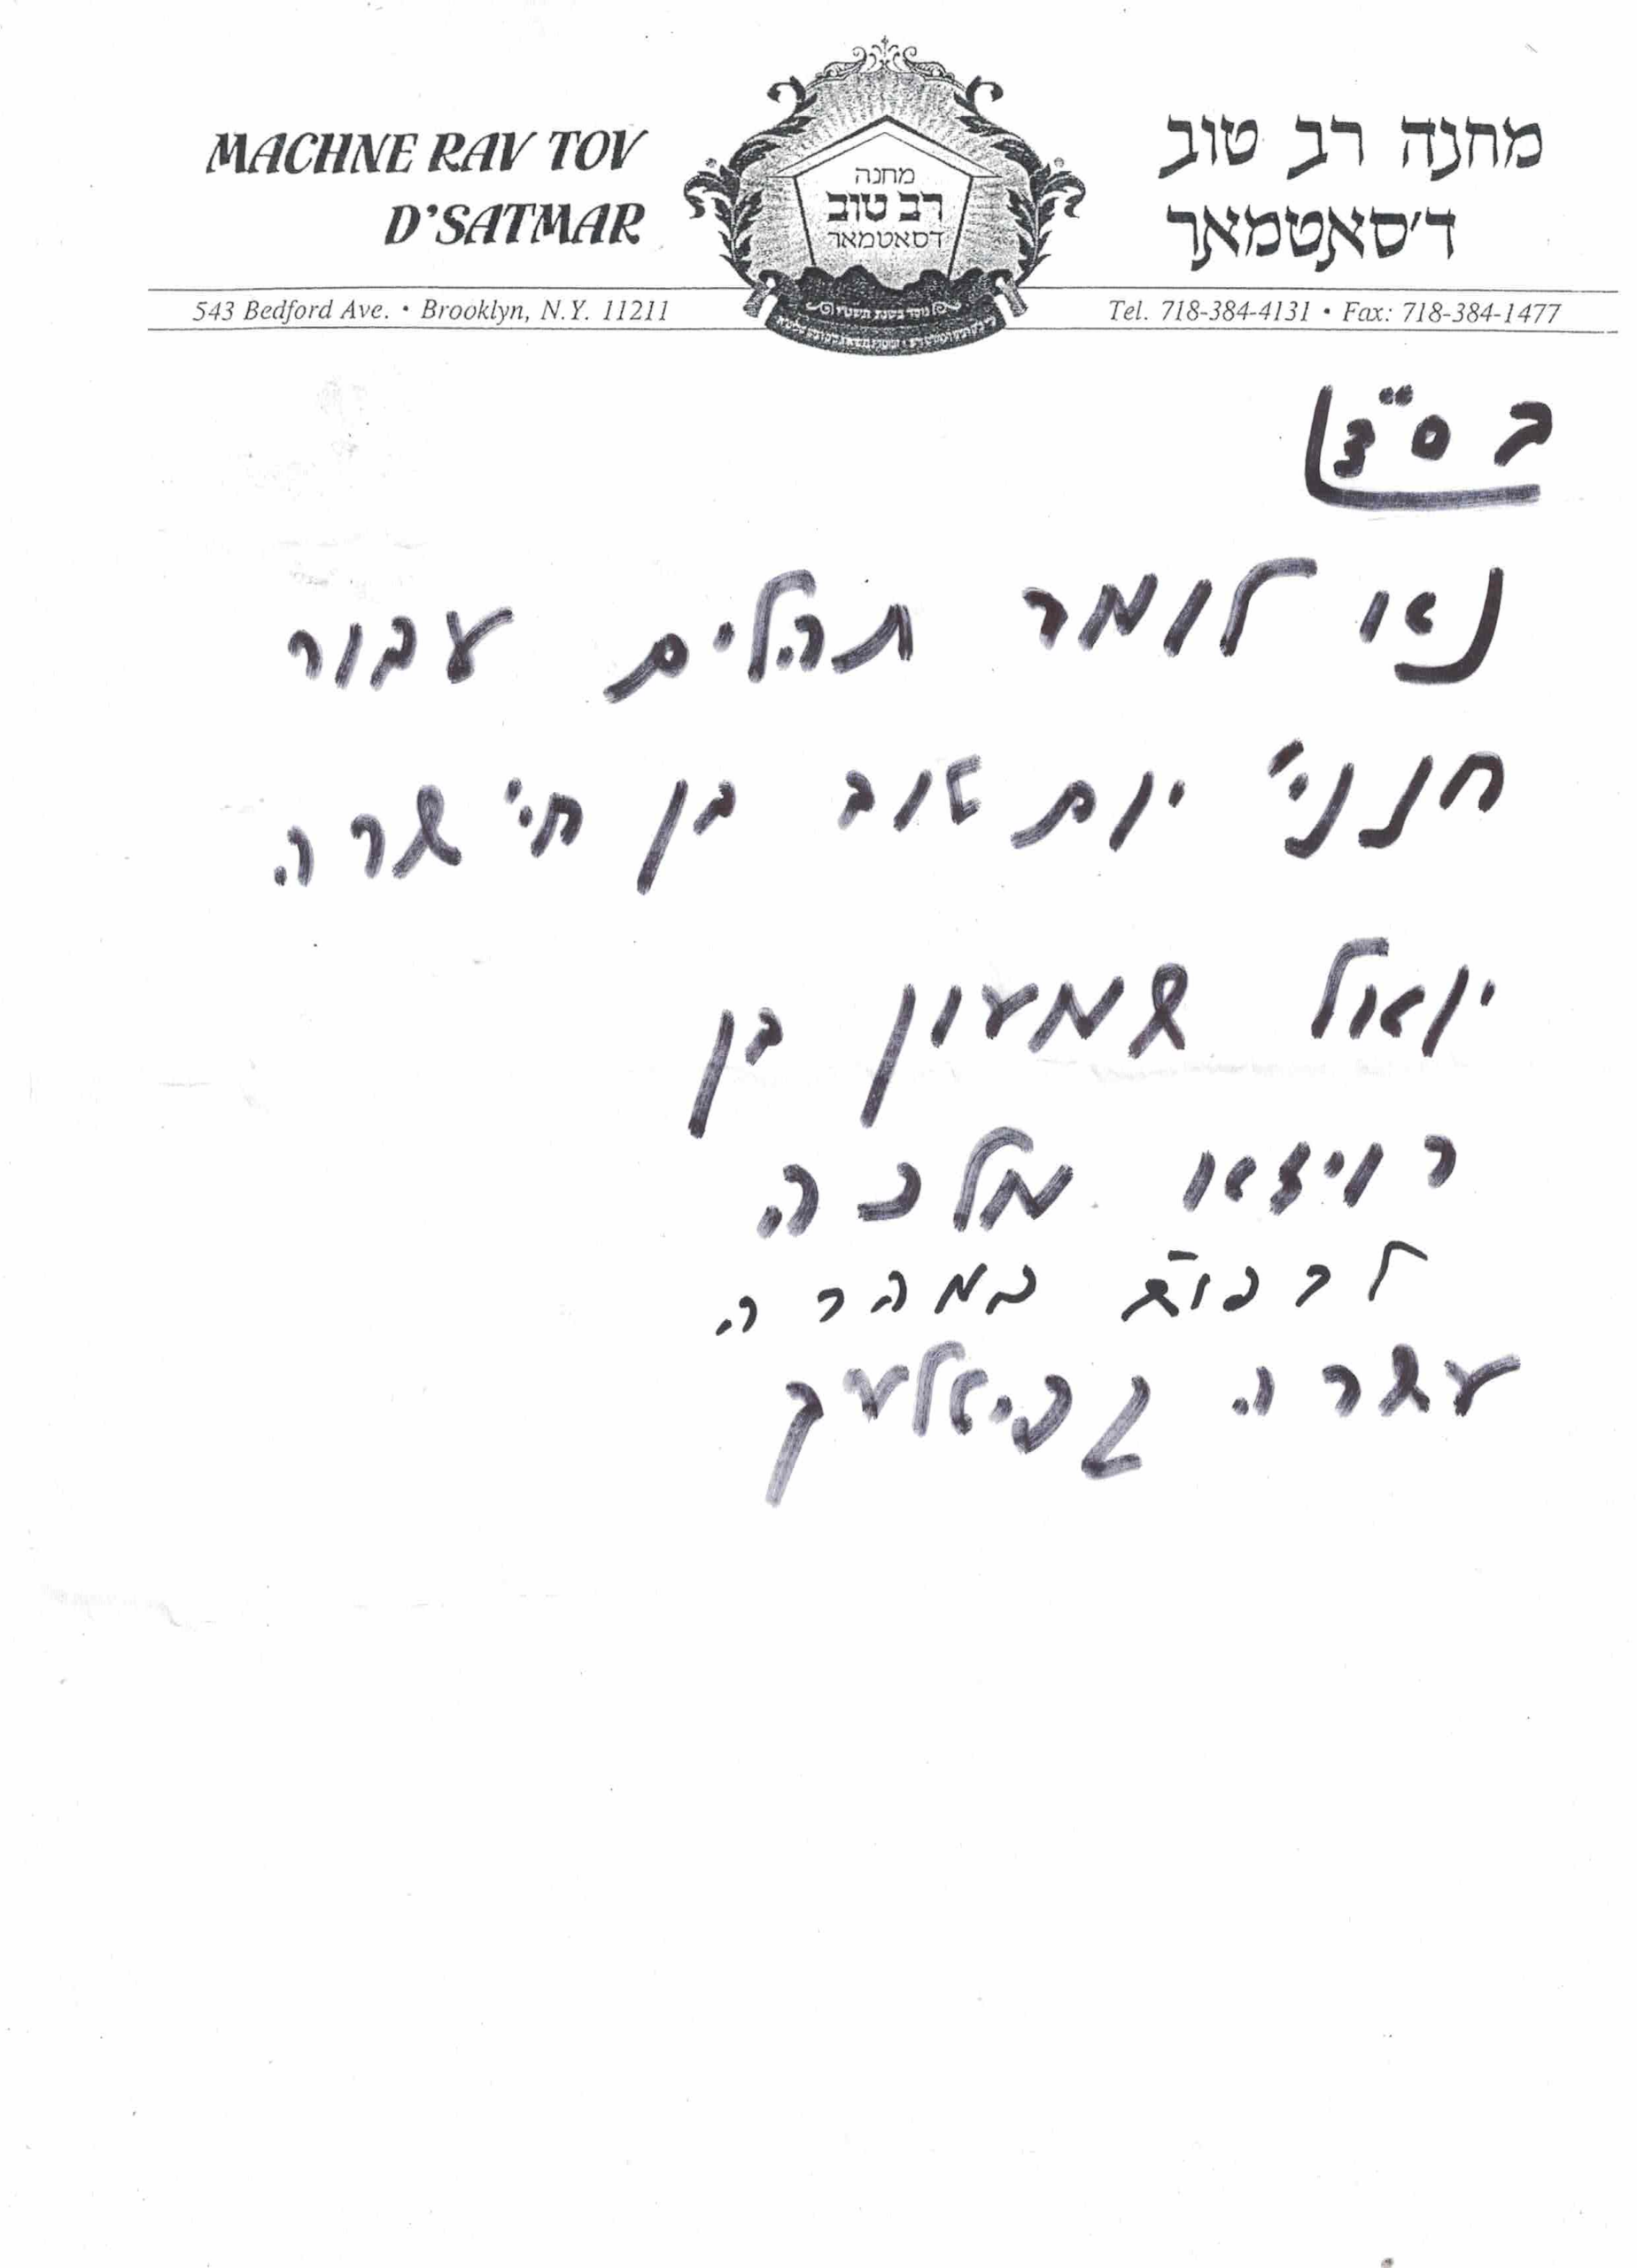 MACHNE RAV TOV
D'SATMAR
מחנה
רב טוב
דסאטמאר
מחנה רב טוב
ד'סאטמאר
543 Bedford Ave. • Brooklyn, N.Y. 11211
Tel. 718-384-4131 • Fax: 718-384-1477
בס"ד
נא לומר תהלים עבור
חנני' יום טוב בן חי' שרה
יואל שמעון בן
רויזא מלכה
במהרה
עשרה קפיטלעך